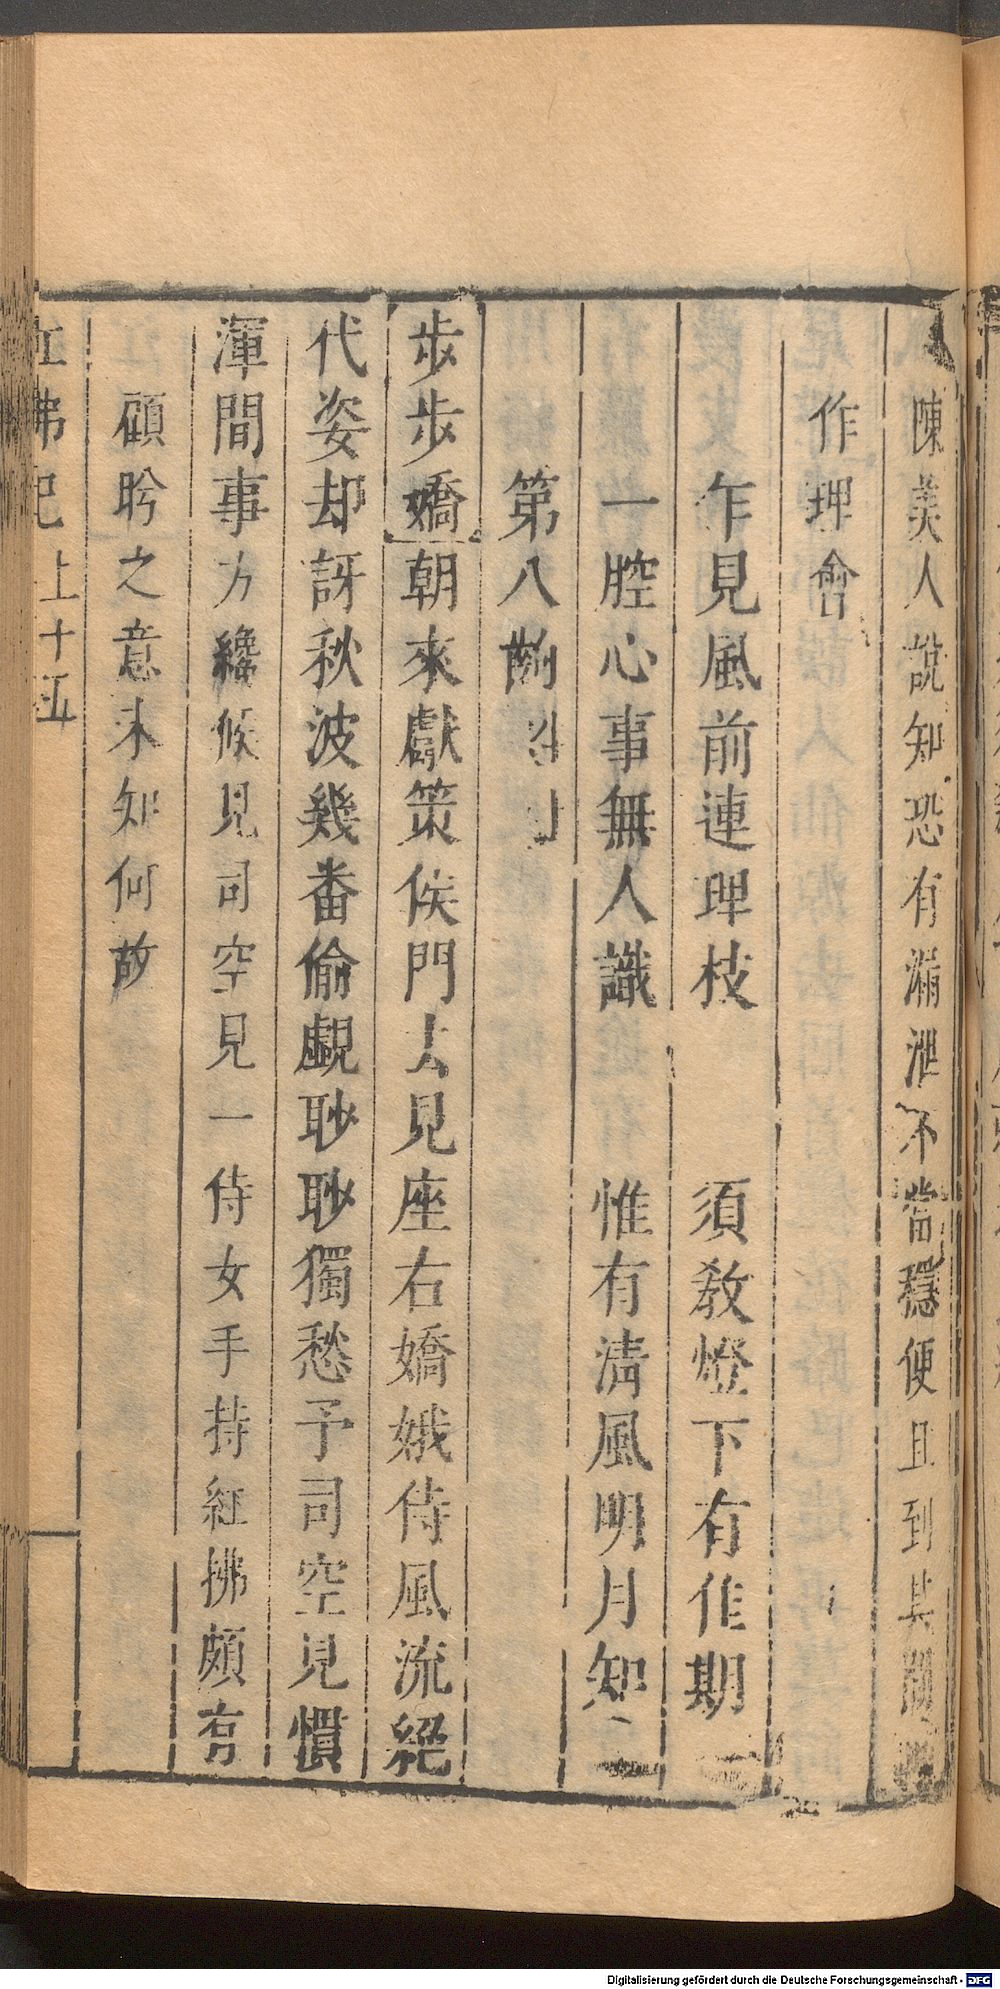 陳美人說知恐有漏泄不當穩便且到其間
作理會
乍見風前連理枝　須教燈下有佳期
一腔心事無人識　惟有清風明月知
第八齣
步步嬌朝來獻策侯門去見座右嬌娥侍風流絕
代姿却訝秋波幾番偷覷眇眇獨愁予司空見慣
渾閒事方纔候見司空見一侍女手持紅拂頗有
顧盻之意未知何故
紅拂記上十五
Digitalisierung gefördert durch die Deutsche Forschungsgemeinschaft - DFG